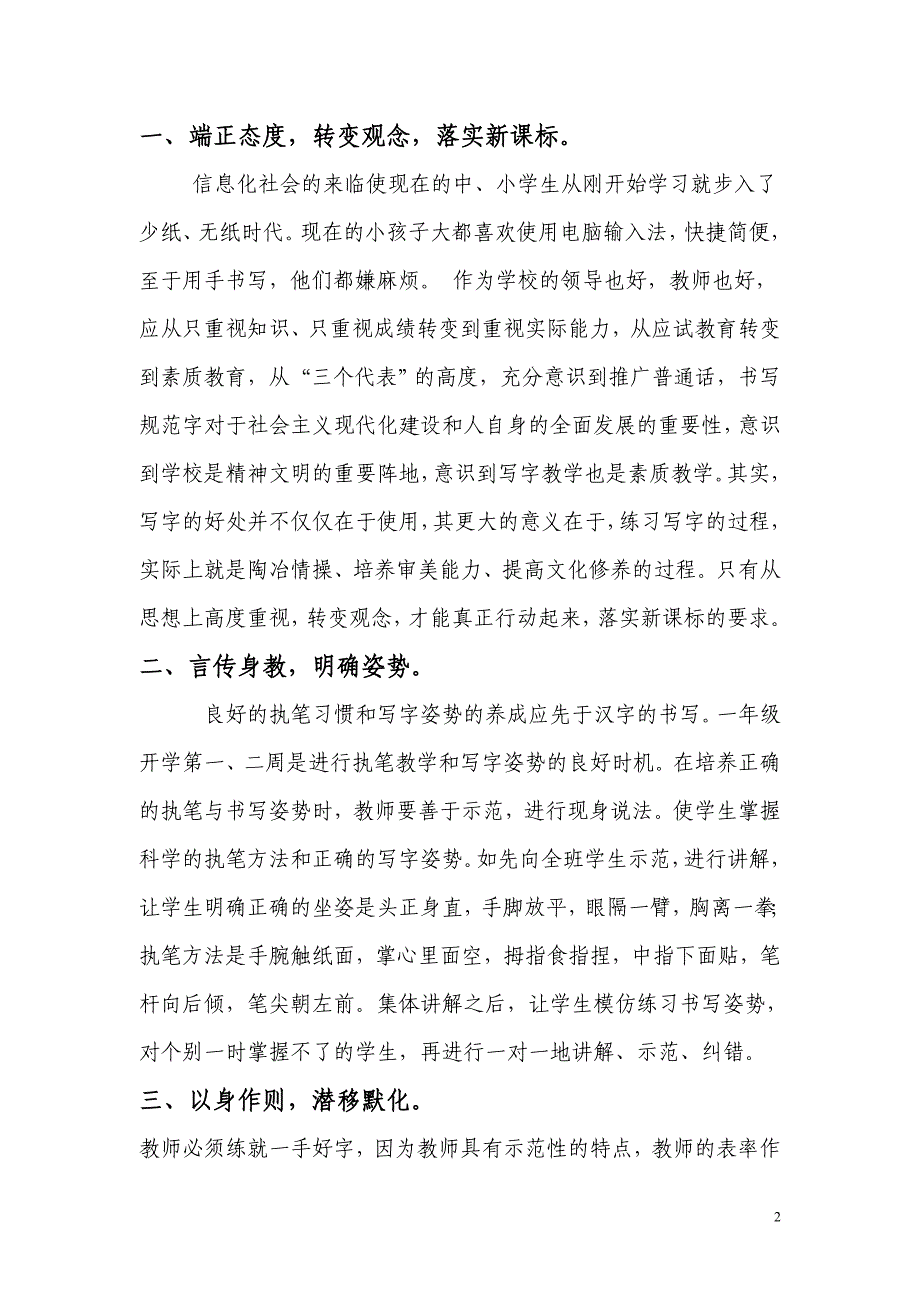 一、端正态度，转变观念，落实新课标。
信息化社会的来临使现在的中、小学生从刚开始学习就步入了
少纸、无纸时代。现在的小孩子大都喜欢使用电脑输入法，快捷简便，
至于用手书写，他们都嫌麻烦。 作为学校的领导也好，教师也好，
应从只重视知识、只重视成绩转变到重视实际能力，从应试教育转变
到素质教育，从“三个代表”的高度，充分意识到推广普通话，书写
规范字对于社会主义现代化建设和人自身的全面发展的重要性，意识
到学校是精神文明的重要阵地，意识到写字教学也是素质教学。其实，
写字的好处并不仅仅在于使用，其更大的意义在于，练习写字的过程，
实际上就是陶冶情操、培养审美能力、提高文化修养的过程。只有从
思想上高度重视，转变观念，才能真正行动起来，落实新课标的要求。
二、言传身教，明确姿势。
良好的执笔习惯和写字姿势的养成应先于汉字的书写。一年级
开学第一、二周是进行执笔教学和写字姿势的良好时机。在培养正确
的执笔与书写姿势时，教师要善于示范，进行现身说法。使学生掌握
科学的执笔方法和正确的写字姿势。如先向全班学生示范，进行讲解，
让学生明确正确的坐姿是头正身直，手脚放平，眼隔一臂，胸离一拳；
执笔方法是手腕触纸面，掌心里面空，拇指食指捏，中指下面贴，笔
杆向后倾，笔尖朝左前。集体讲解之后，让学生模仿练习书写姿势，
对个别一时掌握不了的学生，再进行一对一地讲解、示范、纠错。
三、以身作则，潜移默化。
教师必须练就一手好字，因为教师具有示范性的特点，教师的表率作
2